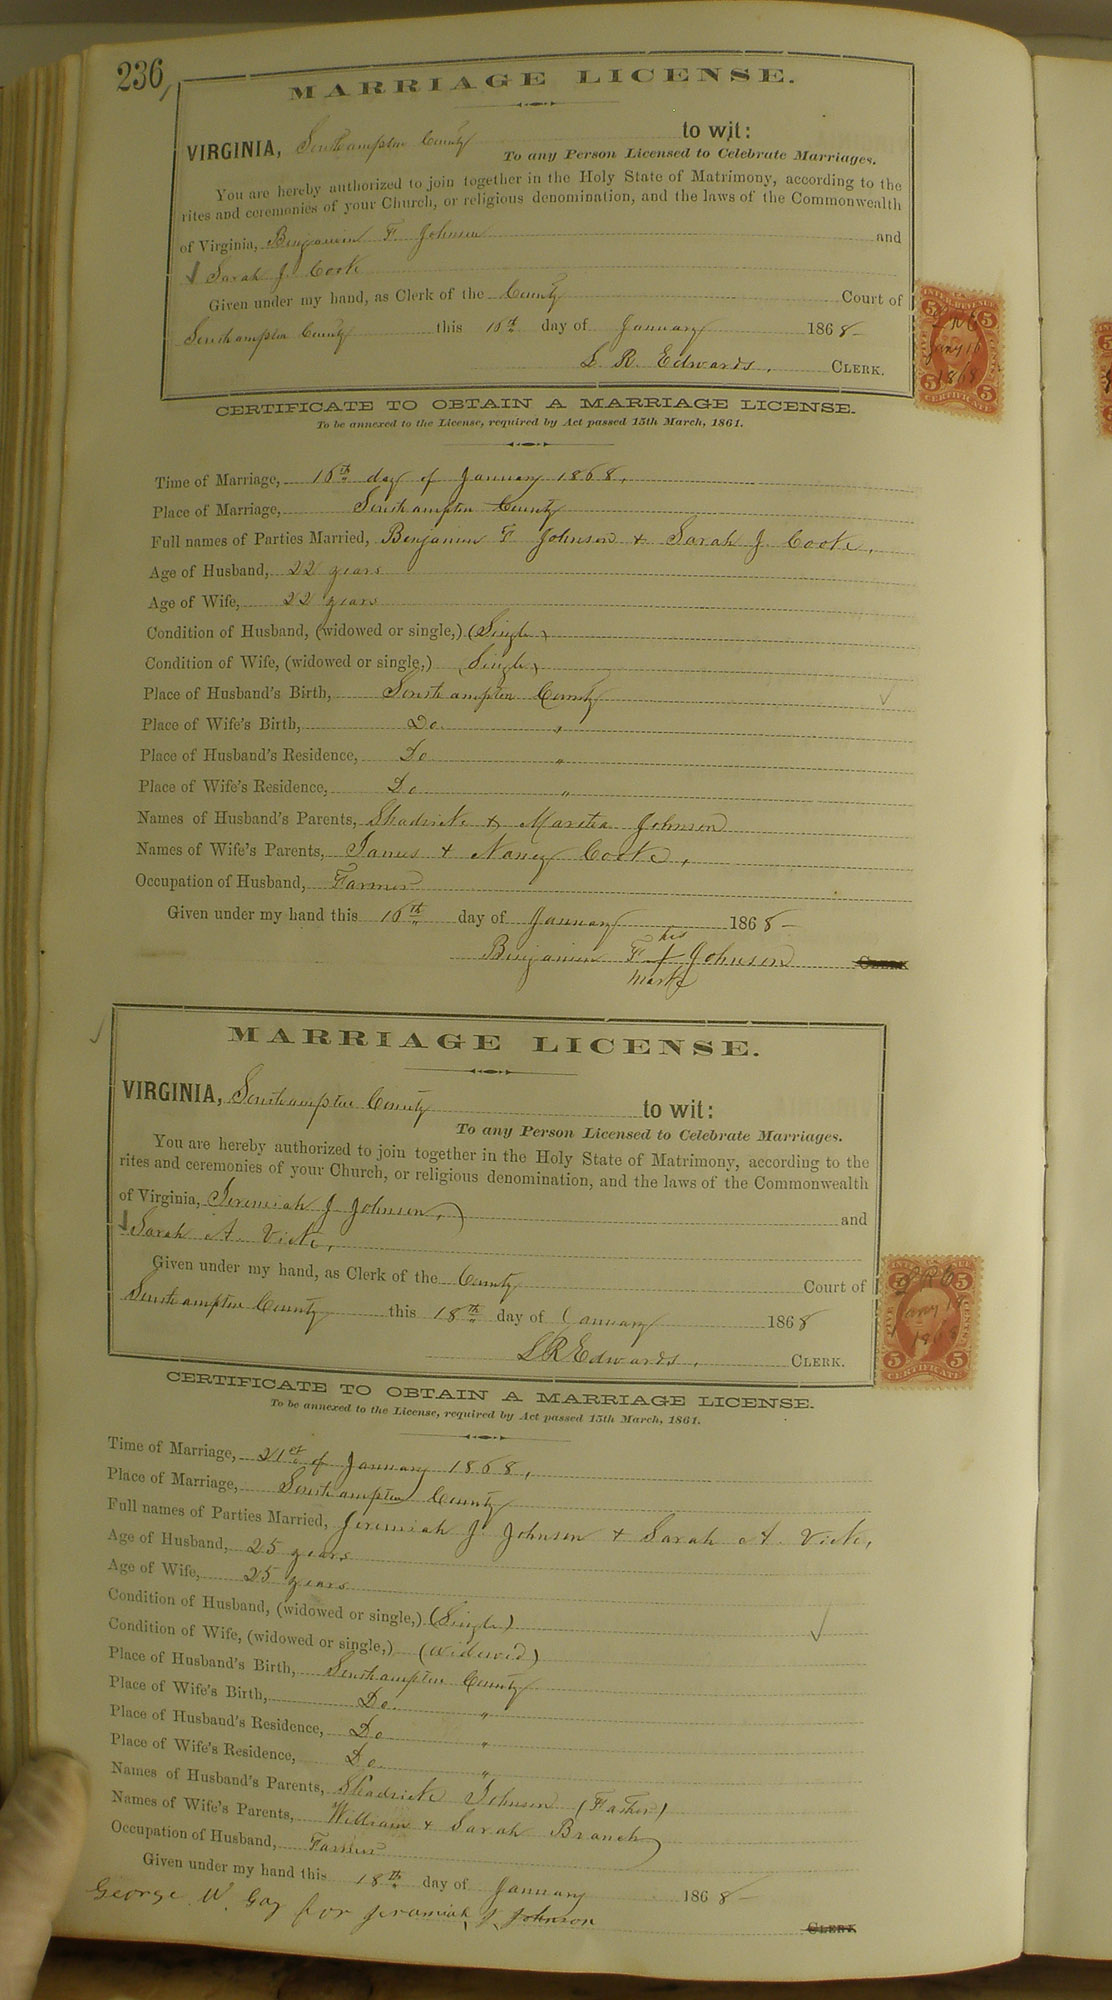 236
MARRIAGE LICENSE.
VIRGINIA, Southampton County to wit:
To any Person Licensed to Celebrate Marriages.
You are hereby authorized to join together in the Holy State of Matrimony, according to the
rites and ceremonies of your Church, or religious denomination, and the laws of the Commonwealth
of Virginia, Benjamin F Johnson and
Sarah J. Cooke
Given under my hand, as Clerk of the County Court of
Southampton County this 16th day of January 1868
L. R. Edwards, CLERK.
CERTIFICATE TO OBTAIN A MARRIAGE LICENSE.
To be annexed to the License, required by Act passed 15th March, 1861.
Time of Marriage, 16th day of January 1868,
Place of Marriage, Southampton County
Full names of Parties Married, Benjamin F Johnson + Sarah J. Cooke,
Age of Husband, 22 years
Age of Wife, 22 years
Condition of Husband, (widowed or single,) (Single)
Condition of Wife, (widowed or single,) (Single)
Place of Husband's Birth, Southampton County
Place of Wife's Birth, Do "
Place of Husband's Residence, Do "
Place of Wife's Residence, Do "
Names of Husband's Parents, Shadrick + Johnson
Names of Wife's Parents, James + Nancy Cooke,
Occupation of Husband, Farmer
Given under my hand this 16th day of January 1868
his
Benjamin F + Johnson CLERK
mark
MARRIAGE LICENSE.
VIRGINIA, Southampton County to wit:
To any Person Licensed to Celebrate Marriages.
You are hereby authorized to join together in the Holy State of Matrimony, according to the
rites and ceremonies of your Church, or religious denomination, and the laws of the Commonwealth
of Virginia, Jeremiah J Johnson, and
Sarah A. Vick,
Given under my hand, as Clerk of the County Court of
Southampton County this 18th day of January 1868
L R Edwards, CLERK.
CERTIFICATE TO OBTAIN A MARRIAGE LICENSE.
To be annexed to the License, required by Act passed 15th March, 1861.
Time of Marriage, 21st of January 1868,
Place of Marriage, Southampton County
Full names of Parties Married, Jeremiah J. Johnson + Sarah A. Vick,
Age of Husband, 25 years
Age of Wife, 25 years
Condition of Husband, (widowed or single,) (Single)
Condition of Wife, (widowed or single,) (widowed)
Place of Husband's Birth, Southampton County
Place of Wife's Birth, Do "
Place of Husband's Residence, Do "
Place of Wife's Residence, Do "
Names of Husband's Parents, Shadrick Johnson (Father)
Names of Wife's Parents, William + Sarah Branch
Occupation of Husband, Farmer
Given under my hand this 18th day of January 1868
George W. Gay for Jeramiah J Johnson CLERK